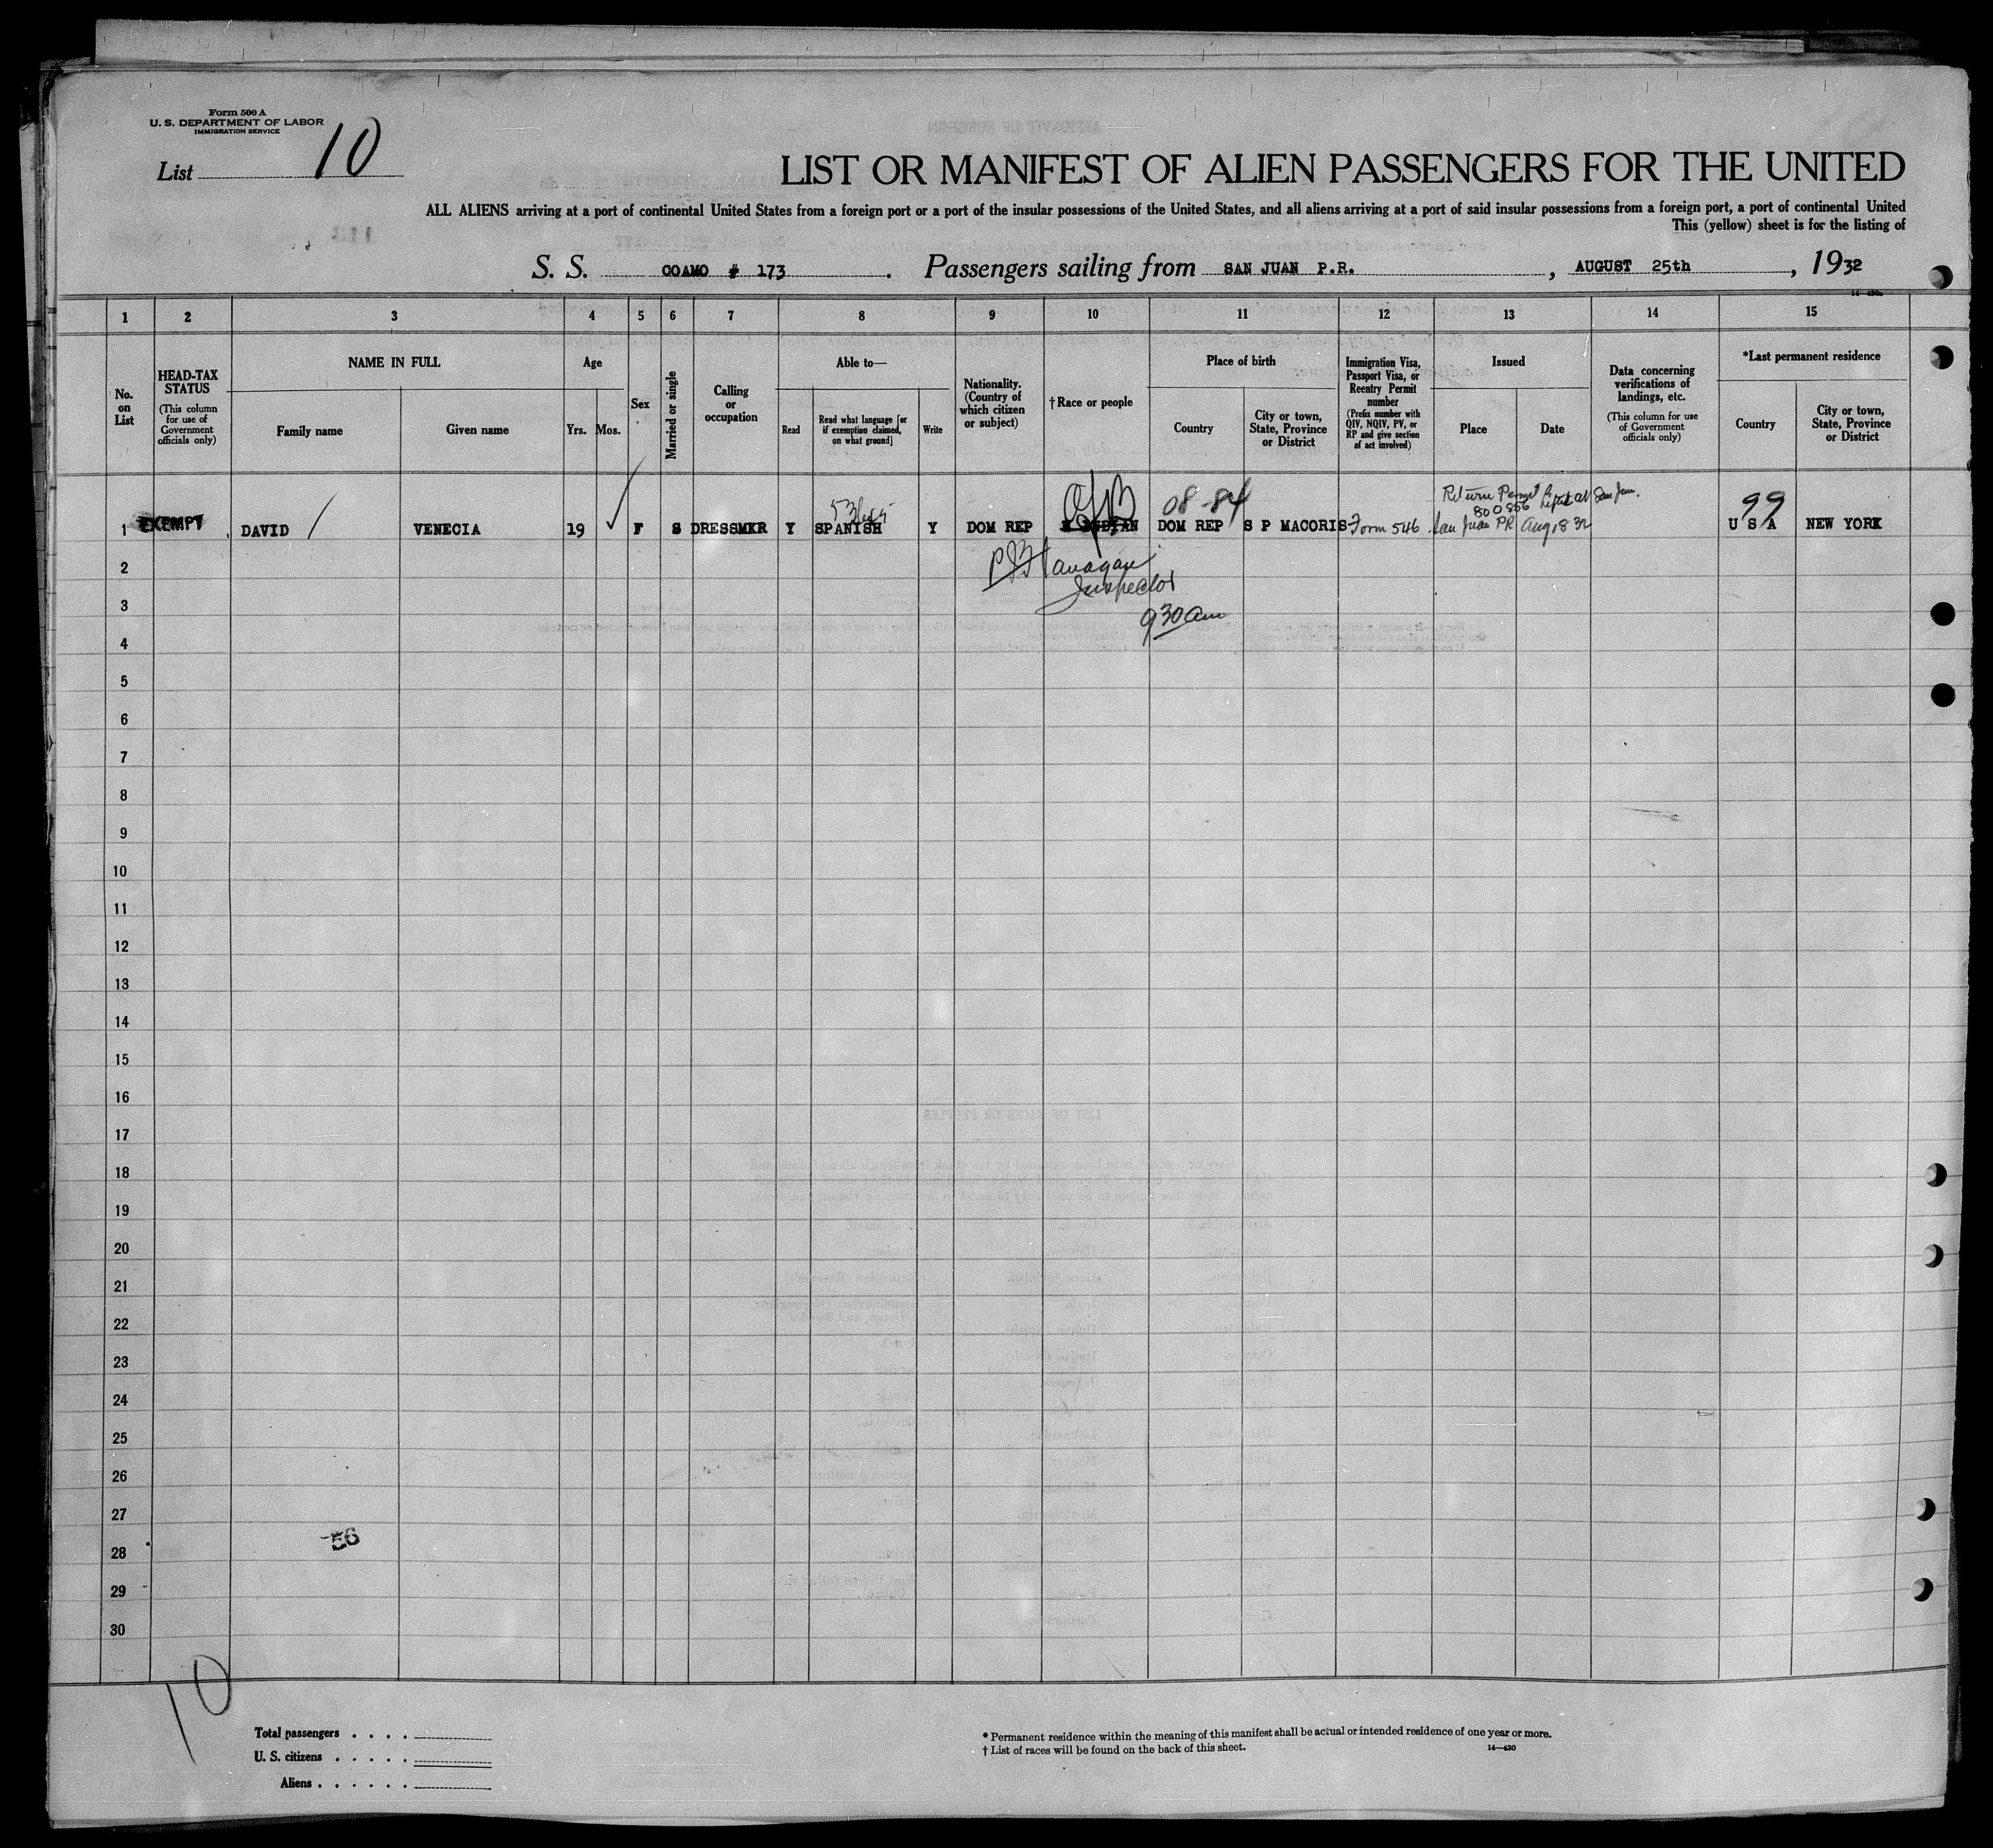 Form 500 A
U. S. DEPARTMENT OF LABOR
IMMIGRATION SERVICE
List 10
LIST OR MANIFEST OF ALIEN PASSENGERS FOR THE UNITED
ALL ALIENS arriving at a port of continental United States from a foreign port or a port of the insular possessions of the United States, and all aliens arriving at a port of said insular possessions from a foreign port, a port of continental United
This (yellow) sheet is for the listing of
S. S. COAMO # 173. Passengers sailing from SAN JUAN P.R., AUGUST 25th, 1932
14-430a
1 2 3 4 5 6 7 8 9 10 11 12 13 14 15
No. on List
HEAD-TAX STATUS
(This column for use of Government officials only)
NAME IN FULL
Family name
Given name
Age
Yrs.
Mos.
Sex
Married or single
Calling or occupation
Able to—
Read
Read what language [or if exemption claimed, on what ground]
Write
Nationality. (Country of which citizen or subject)
†Race or people
Place of birth
Country
City or town, State, Province or District
Immigration Visa, Passport Visa, or Reentry Permit number
(Prefix number with QIV, NQIV, PV, or RP and give section of act involved)
Issued
Place
Date
Data concerning verifications of landings, etc.
(This column for use of Government officials only)
*Last permanent residence
Country
City or town, State, Province or District
08-84
Return Permit
800856
San Juan
99
1 EXEMPT DAVID VENECIA 19 F S DRESSMKR Y SPANISH Y DOM REP INDIAN DOM REP S P MACORIS Form 546 San Juan PR Aug 18 32 U S A NEW YORK
Flanagan
Inspector
9 30 am
2
3
4
5
6
7
8
9
10
11
12
13
14
15
16
17
18
19
20
21
22
23
24
25
26
27
56
28
29
30
10
Total passengers
U. S. citizens
Aliens
* Permanent residence within the meaning of this manifest shall be actual or intended residence of one year or more.
† List of races will be found on the back of this sheet.
14—430